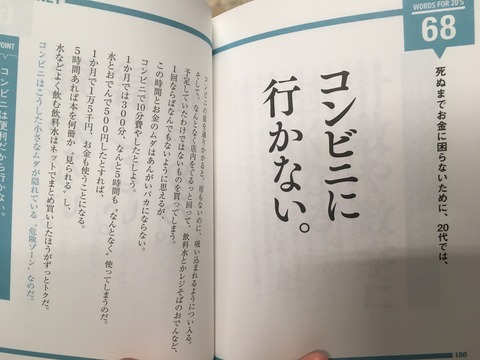 WORDS FOR 20'S
68
死ぬまでお金に困らないために、20代では、
コンビニに
行かない。
コンビニの前を通りかかると、用もないのに、吸い込まれるようについ入る。
そして、なんとなく店内をぐるっと回って、飲料水とかレジそばのおでんなど、
予定していたわけではないものを買ってしまう。
1回ならばなんでもないように思えるが、
この時間とお金のムダはあんがいバカにならない。
コンビニで10分費やしたとしよう。
1か月では300分、なんと5時間も"なんとなく"使ってしまうのだ。
水とおでんで500円としたとすれば、
1か月で1万5千円、お金も使うことになる。
5時間あれば本を何冊か「見られる」し、
水などよく飲む飲料水はネットでまとめ買いしたほうがずっとトクだ。
コンビニはこうした小さなムダが隠れている"危険ゾーン"なのだ。
POINT
コンビニは便利だから行かない。
180